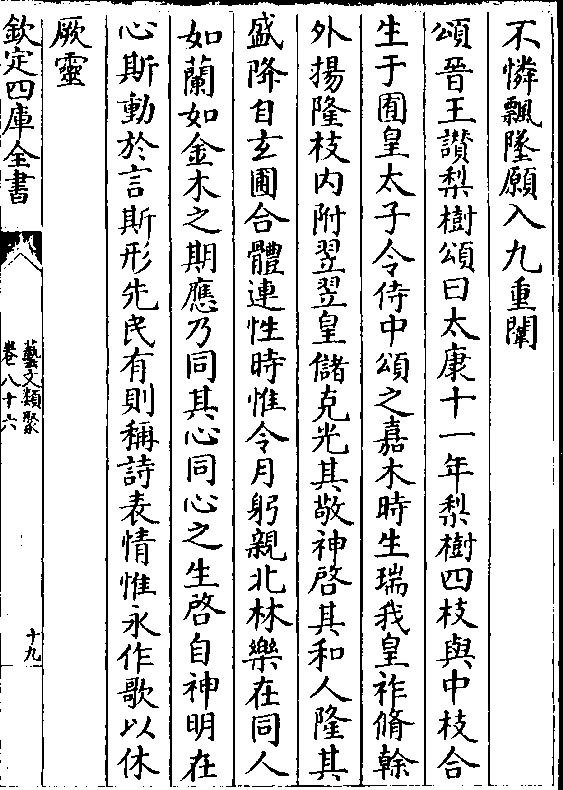 不憐飄墜願入九重闈
頌晉王讃梨樹頌曰太康十一年梨樹四枝與中枝合
生于囿皇太子令侍中頌之嘉木時生瑞我皇祚脩榦
外揚隆枝内附翌翌皇儲克光其敬神啓其和人隆其
盛降自玄圃合體連性時惟令月躬親北林樂在同人
如蘭如金木之期應乃同其心同心之生啓自神明在
心斯動於言斯形先民有則稱詩表情惟永作歌以休
厥靈
欽定四庫全書
藝文類聚
卷八十六
十九